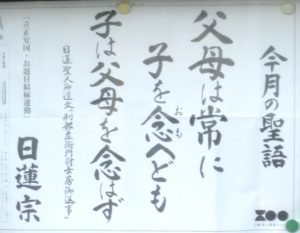 今月の聖語
父母は常に
子を念へども
おも
子は父母を念はず
日蓮聖人御遺文『刑部左衛門尉女房御返事』
「立正安国・お題目結縁運動」
日蓮宗